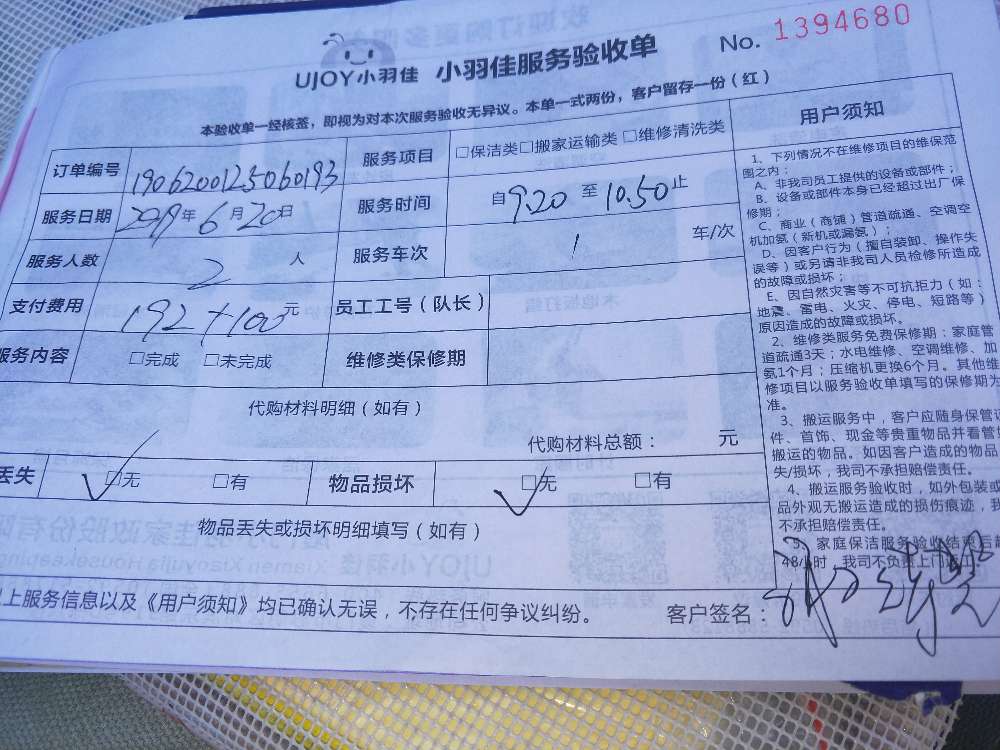 UJOY小羽佳 小羽佳服务验收单 No. 1394680
本验收单一经核签，即视为对本次服务验收无异议。本单一式两份，客户留存一份（红）
订单编号 1906200125060193 服务项目 □保洁类□搬家运输类□维修清洗类
服务日期 2019年6月20日 服务时间 自9.20至10.50止
服务人数 2人 服务车次 1 车/次
支付费用 192+100元 员工工号（队长）
服务内容 □完成 □未完成 维修类保修期
代购材料明细（如有）
代购材料总额： 元
丢失 ☑无 □有 物品损坏 ☑无 □有
物品丢失或损坏明细填写（如有）
上服务信息以及《用户须知》均已确认无误，不存在任何争议纠纷。 客户签名：
用户须知
1、下列情况不在维修项目的维保范
围之内：
A、非我司员工提供的设备或部件；
B、设备或部件本身已经超过出厂保
修期；
C、商业（商铺）管道疏通、空调空
机加氨（新机或漏氨）；
D、因客户行为（擅自装卸、操作失
误等）或另请非我司人员检修所造成
的故障或损坏；
E、因自然灾害等不可抗拒力（如：
地震、雷电、火灾、停电、短路等）
原因造成的故障或损坏。
2、维修类服务免费保修期：家庭管
道疏通3天；水电维修、空调维修、加
氨1个月；压缩机更换6个月。其他维
修项目以服务验收单填写的保修期为
准。
3、搬运服务中，客户应随身保管证
件、首饰、现金等贵重物品并看管
搬运的物品。如因客户造成的物品
失/损坏，我司不承担赔偿责任。
4、搬运服务验收时，如外包装或
品外观无搬运造成的损伤痕迹，我
不承担赔偿责任。
5、家庭保洁服务验收结束后超
48小时，我司不负责上门